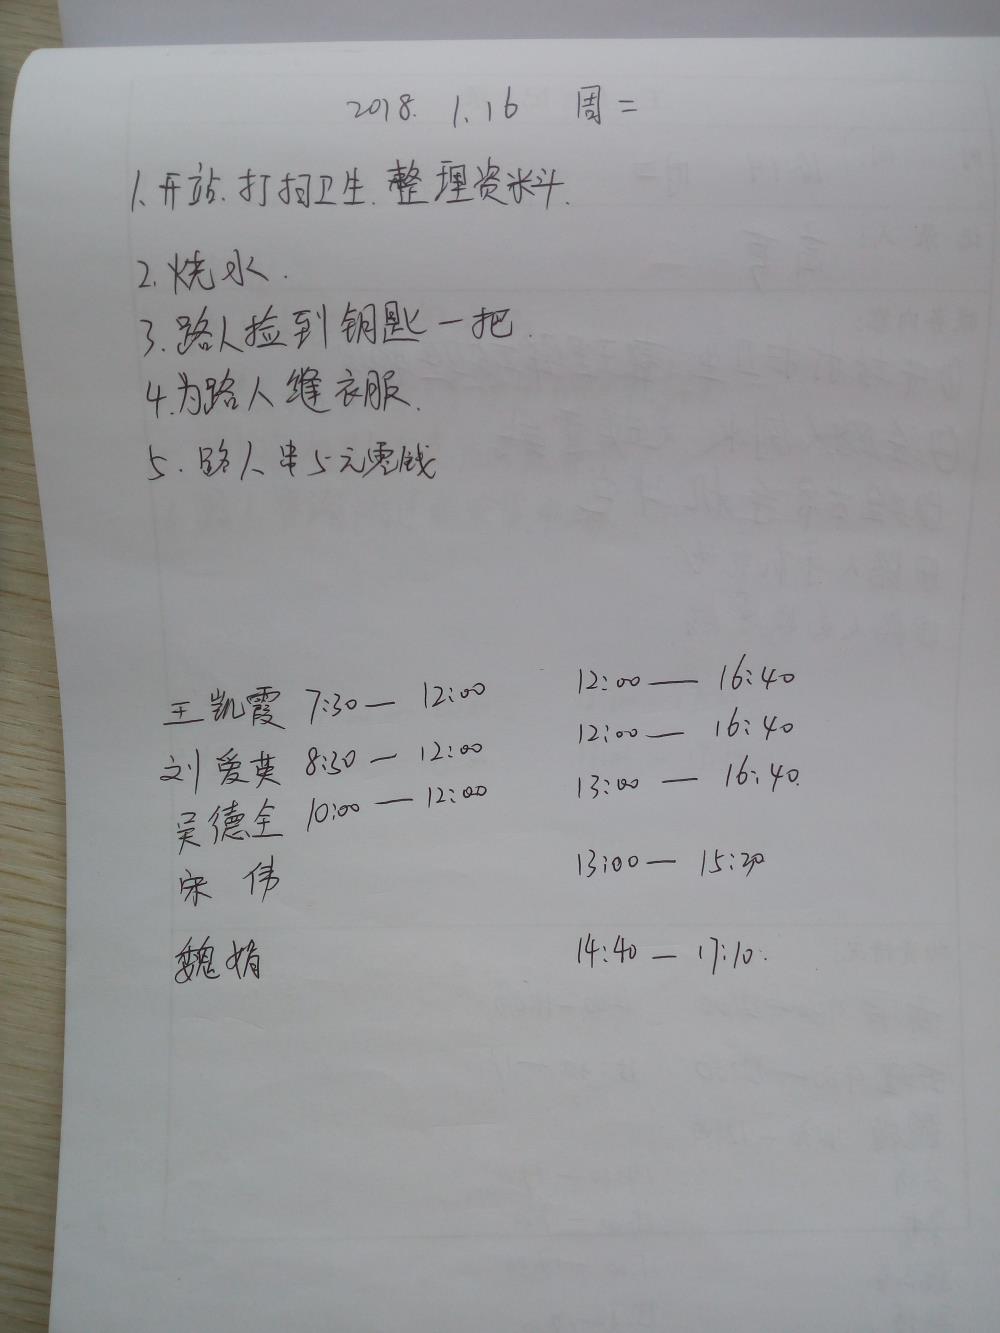 2018. 1.16 周二
1.开站.打扫卫生.整理资料.
2.烧水.
3.路人捡到钥匙一把.
4.为路人缝衣服.
5.路人串5元零钱
王凯霞 7:30— 12:00 12:00 — 16:40
刘爱英 8:30 — 12:00 12:00 — 16:40
吴德全 10:00 — 12:00 13:00 — 16:40.
宋 伟 13:00 — 15:20
魏娟 14:40 — 17:10.